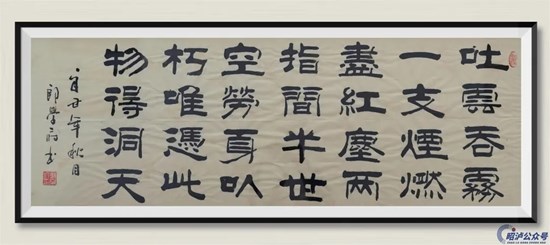 吐雲吞霧
一支煙燃
盡紅塵兩
指間半世
空勞身以
朽唯憑此
物得洞天
辛丑年秋月
昭泸公众号